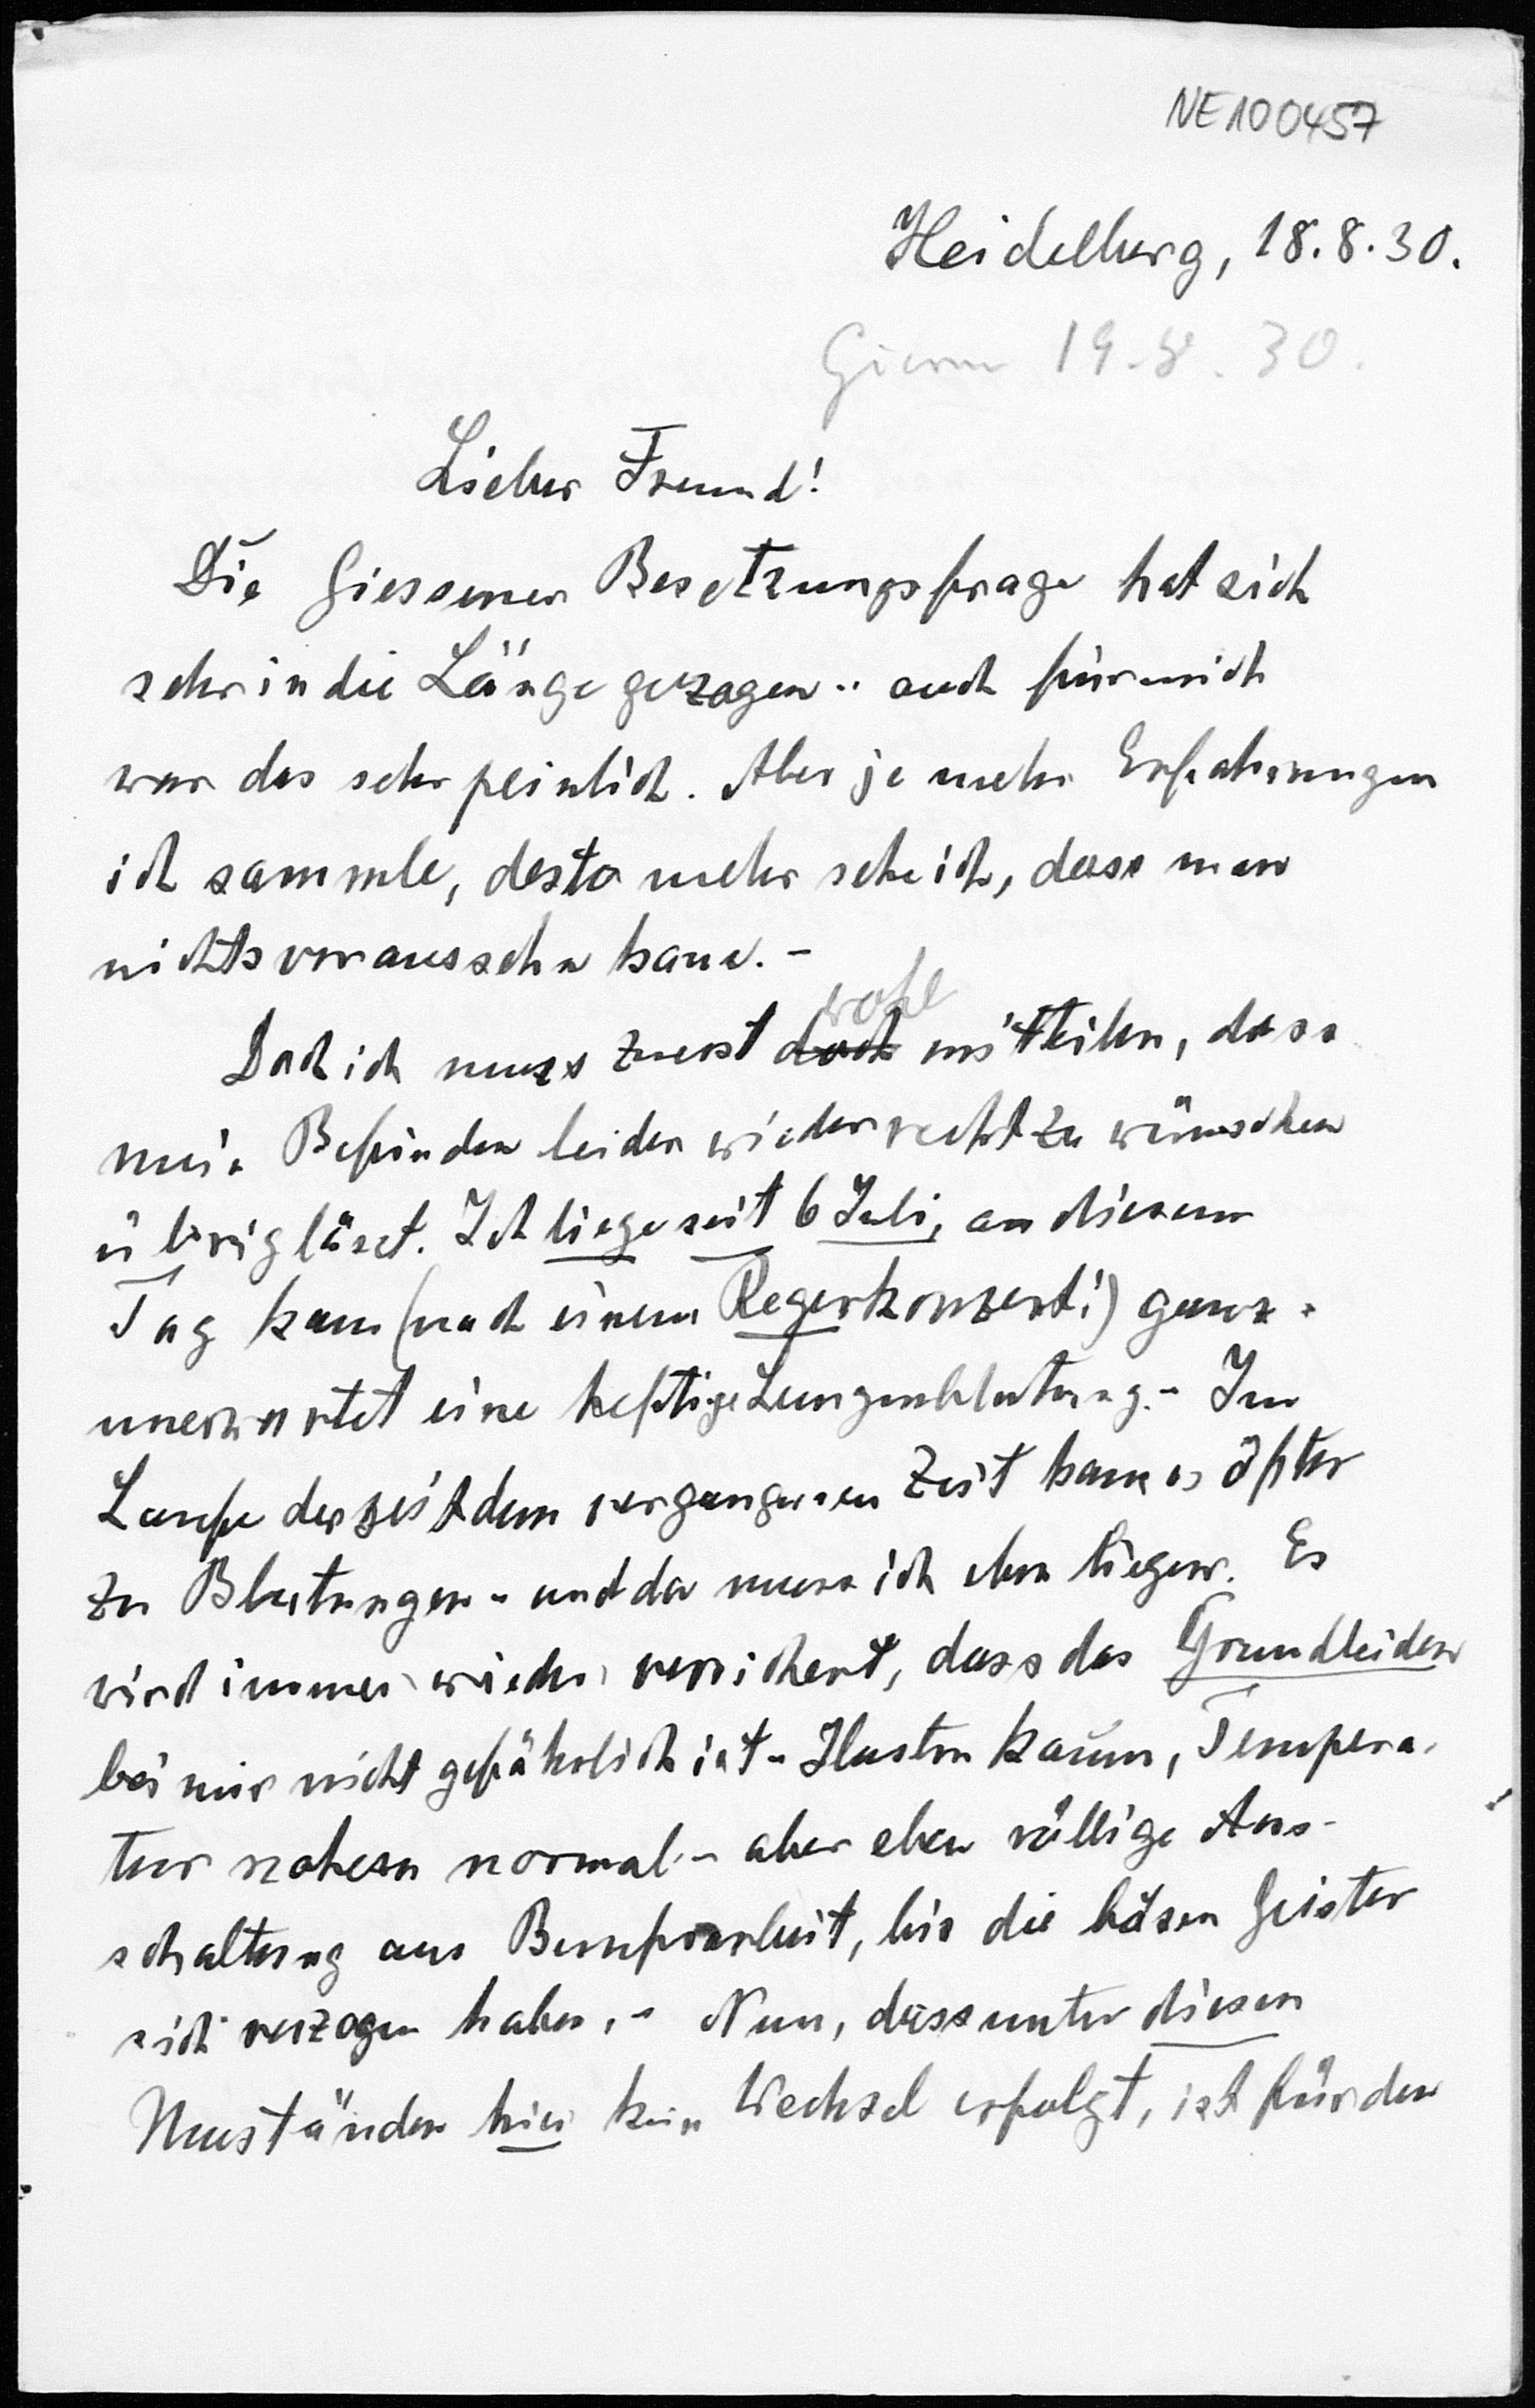 NE100457
Heidelberg, 18.8.30.
19.8.30.
Lieber Freund!
Die Giessener Besetzungsfrage hat sich
sehr in die Länge gezogen - auch für mich
war das sehr peinlich. Aber je mehr Erfahrungen
ich sammle, desto mehr sehe ich, dass man
nichts voraussehn kann. -
wohl
Doch ich muss zuerst doch mitteilen, dass
mein Befinden leider wieder recht zu wünschen
übrig lässt. Ich liege seit 6 Juli, an diesem
Tag kam (nach einem Regerkonzert!) ganz
unerwartet eine heftige Lungenblutung. - Im
Laufe der seitdem vergangenen Zeit kam es öfter
zu Blutungen - und da muss ich eben liegen. Es
wird immer wieder versichert, dass das Grundleiden
bei mir nicht gefährlich ist - Husten kaum, Tempera-
tur nahezu normal - aber eben völlige Aus-
schaltung aus Berufsarbeit, bis die bösen Geister
sich verzogen haben. - Nun, dass unter diesen
Umständen hier kein Wechsel erfolgt, ist für den